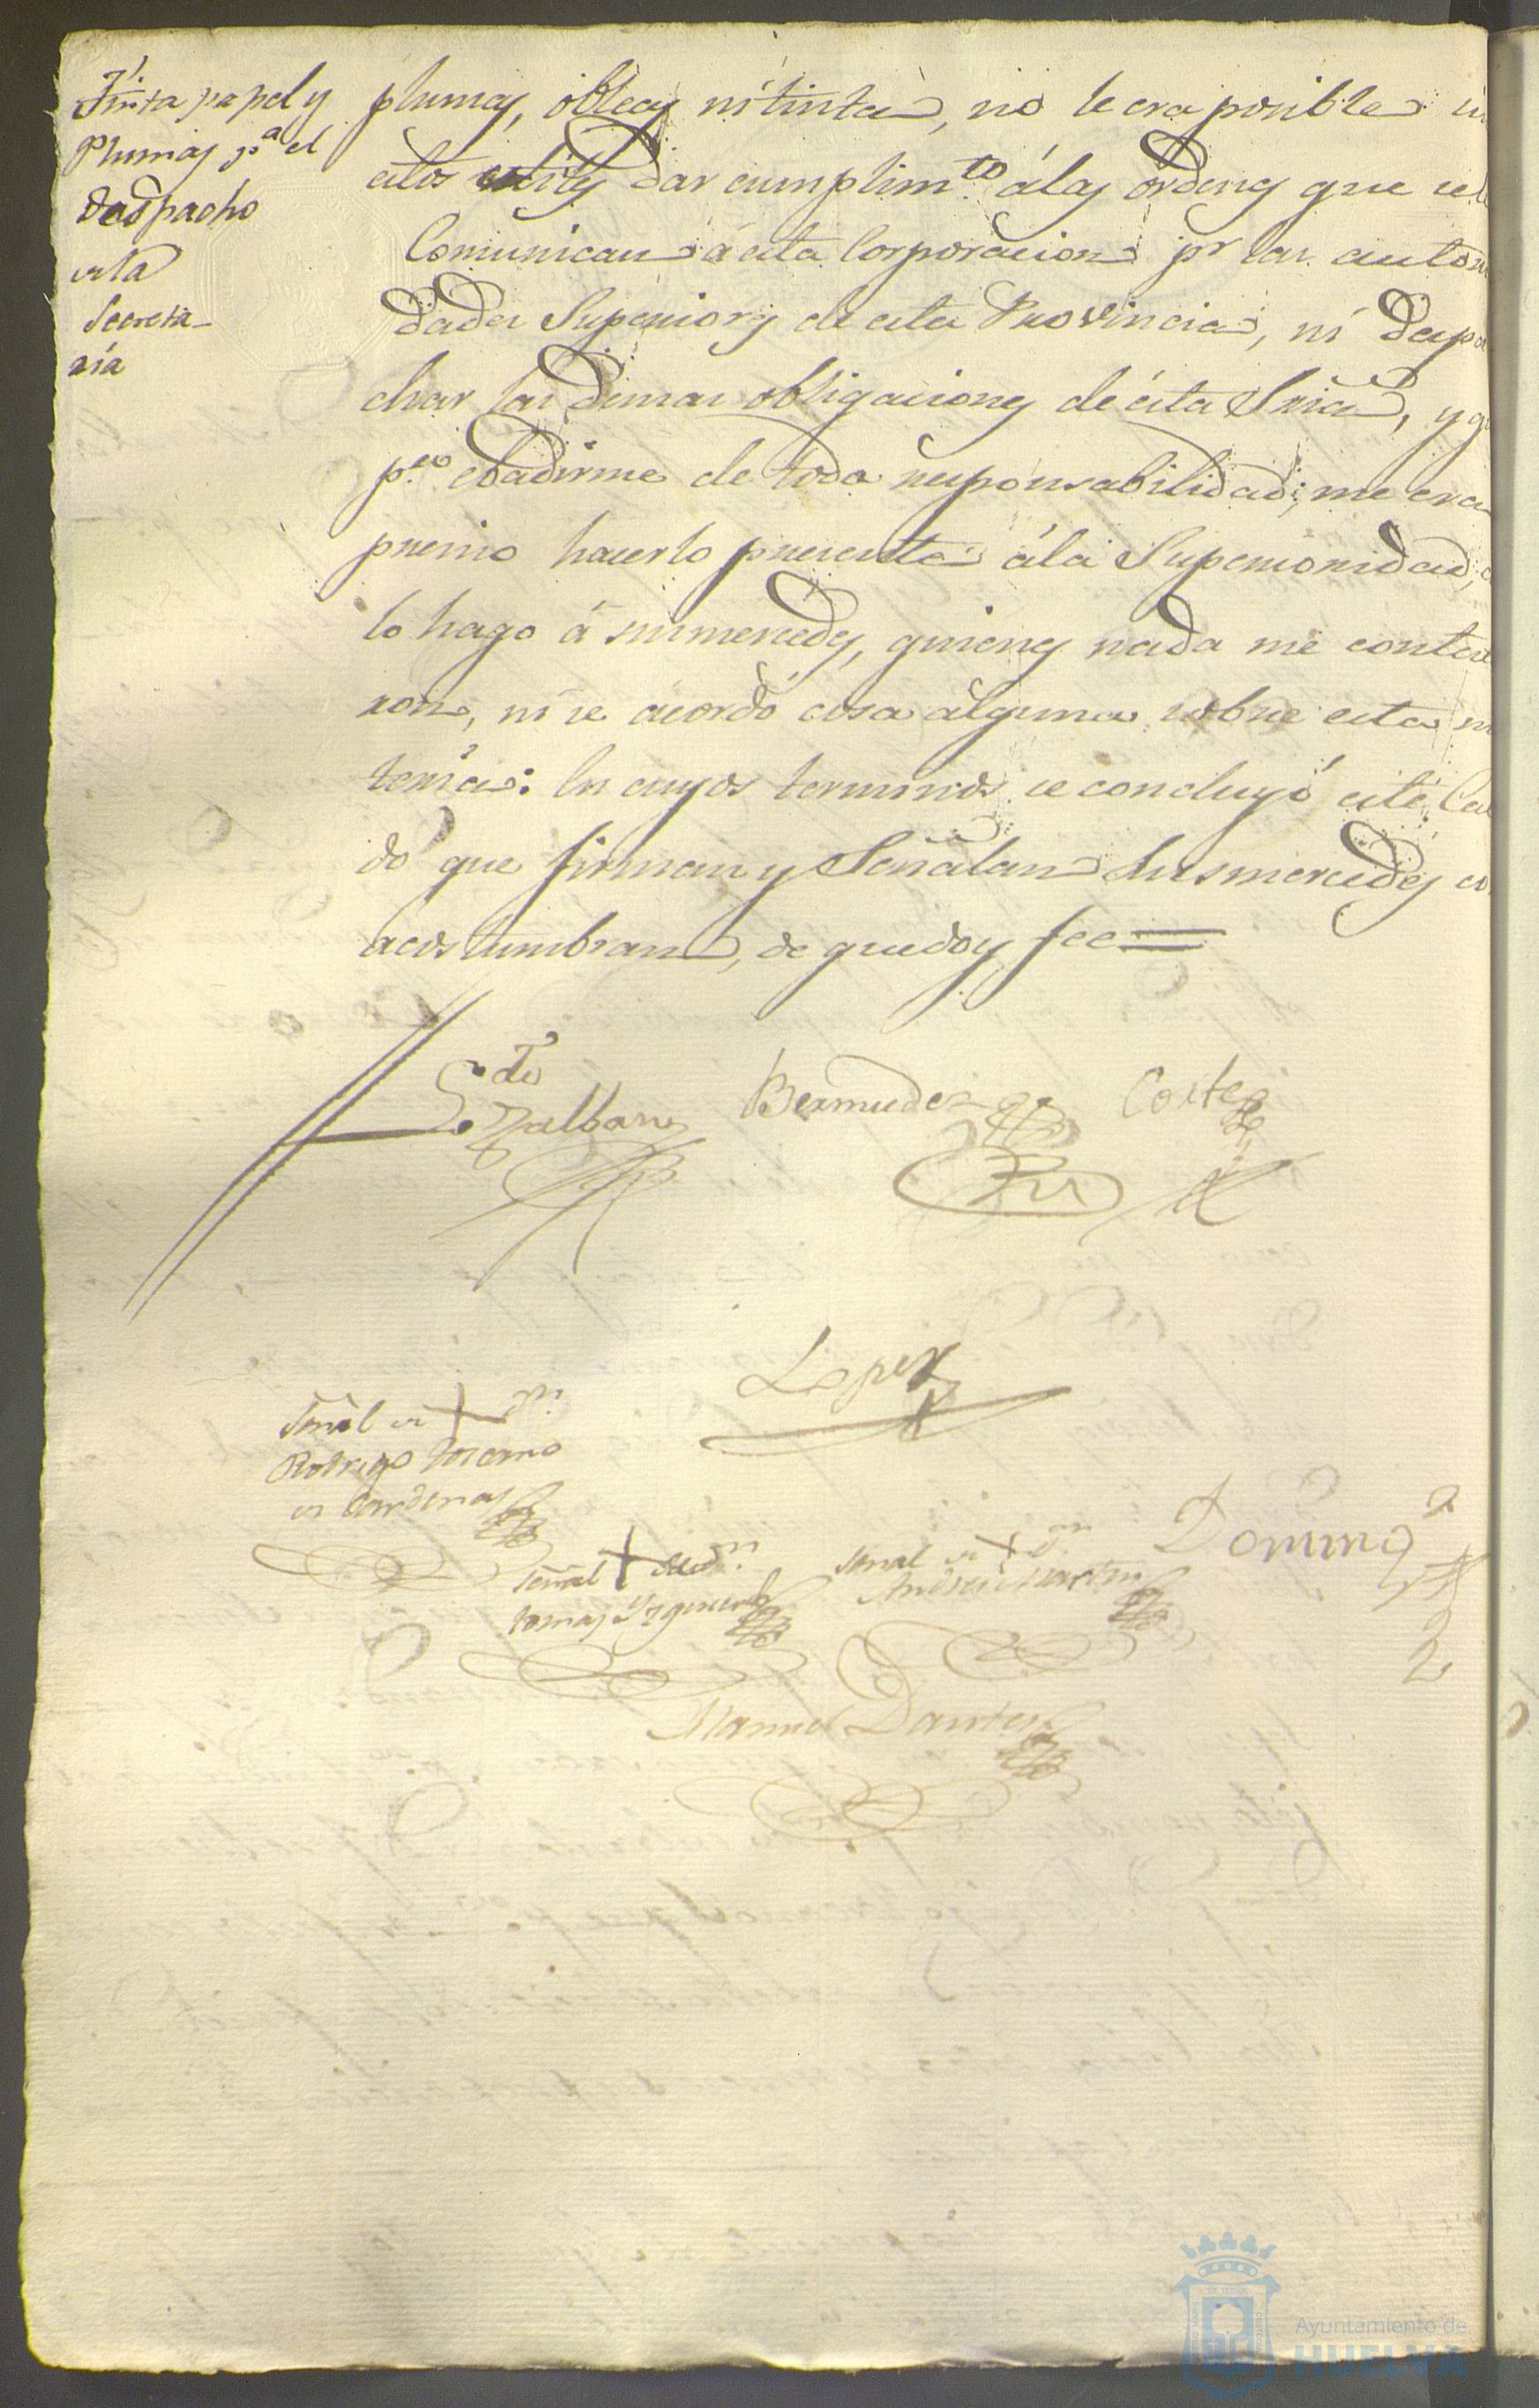 Tinta papel y
Plumas pª el
despacho
esta
Secreta-
ria
plumas, obleas ni tinta, no le era posible
estos utiles dar cumplimto á las ordenes que se le
Comunican á esta Corporacion pr las autori
dades Superiores de esta Provincia, ni despa
char las demas obligaciones de ésta Sria, y
ebadirme de toda responsabilidad; me era
presiso hacerlo presente á la Superioridad,
lo hago á sus mercedes, quienes nada me contesta
ron, ni se acordó cosa alguna sobre esta ma
teria: En cuyos terminos se concluyó este Cavil
do que firman y Señalan Sus mercedes co
acostumbran, de que doy fee=
Bermudez Cortes
Lopez
Señal de + Dn
Rodrigo
de Cardenas
Señal + de Dn
tomas Yzquierdo
Señal de + Dn
Andres Martin
Doming
Manuel Dantes
Ayuntamiento de
HUELVA